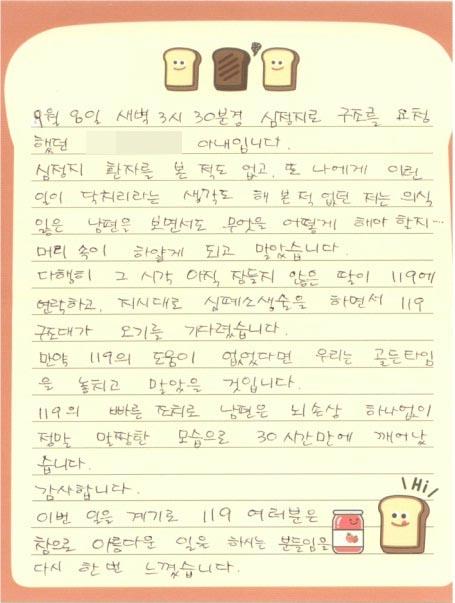 9월 8일 새벽 3시 30분경 심정지로 구조를 요청
했던 아내입니다.
심정지 환자를 본 적도 없고, 또 나에게 이런
일이 닥치리라는 생각도 해 본 적 없던 저는 의식
잃은 남편을 보면서도 무엇을 어떻게 해야 할지…
머리 속이 하얗게 되고 말았습니다.
다행히 그 시각 아직 잠들지 않은 딸이 119에
연락하고, 지시대로 심폐소생술을 하면서 119
구조대가 오기를 기다렸습니다.
만약 119의 도움이 없었다면 우리는 골든타임
을 놓치고 말았을 것입니다.
119의 빠른 조치로 남편은 뇌손상 하나없이
정말 말짱한 모습으로 30시간만에 깨어났
습니다.
감사합니다.
Hi!
이번 일을 계기로 119 여러분은
참으로 아름다운 일을 하시는 분들임을
다시 한 번 느꼈습니다.